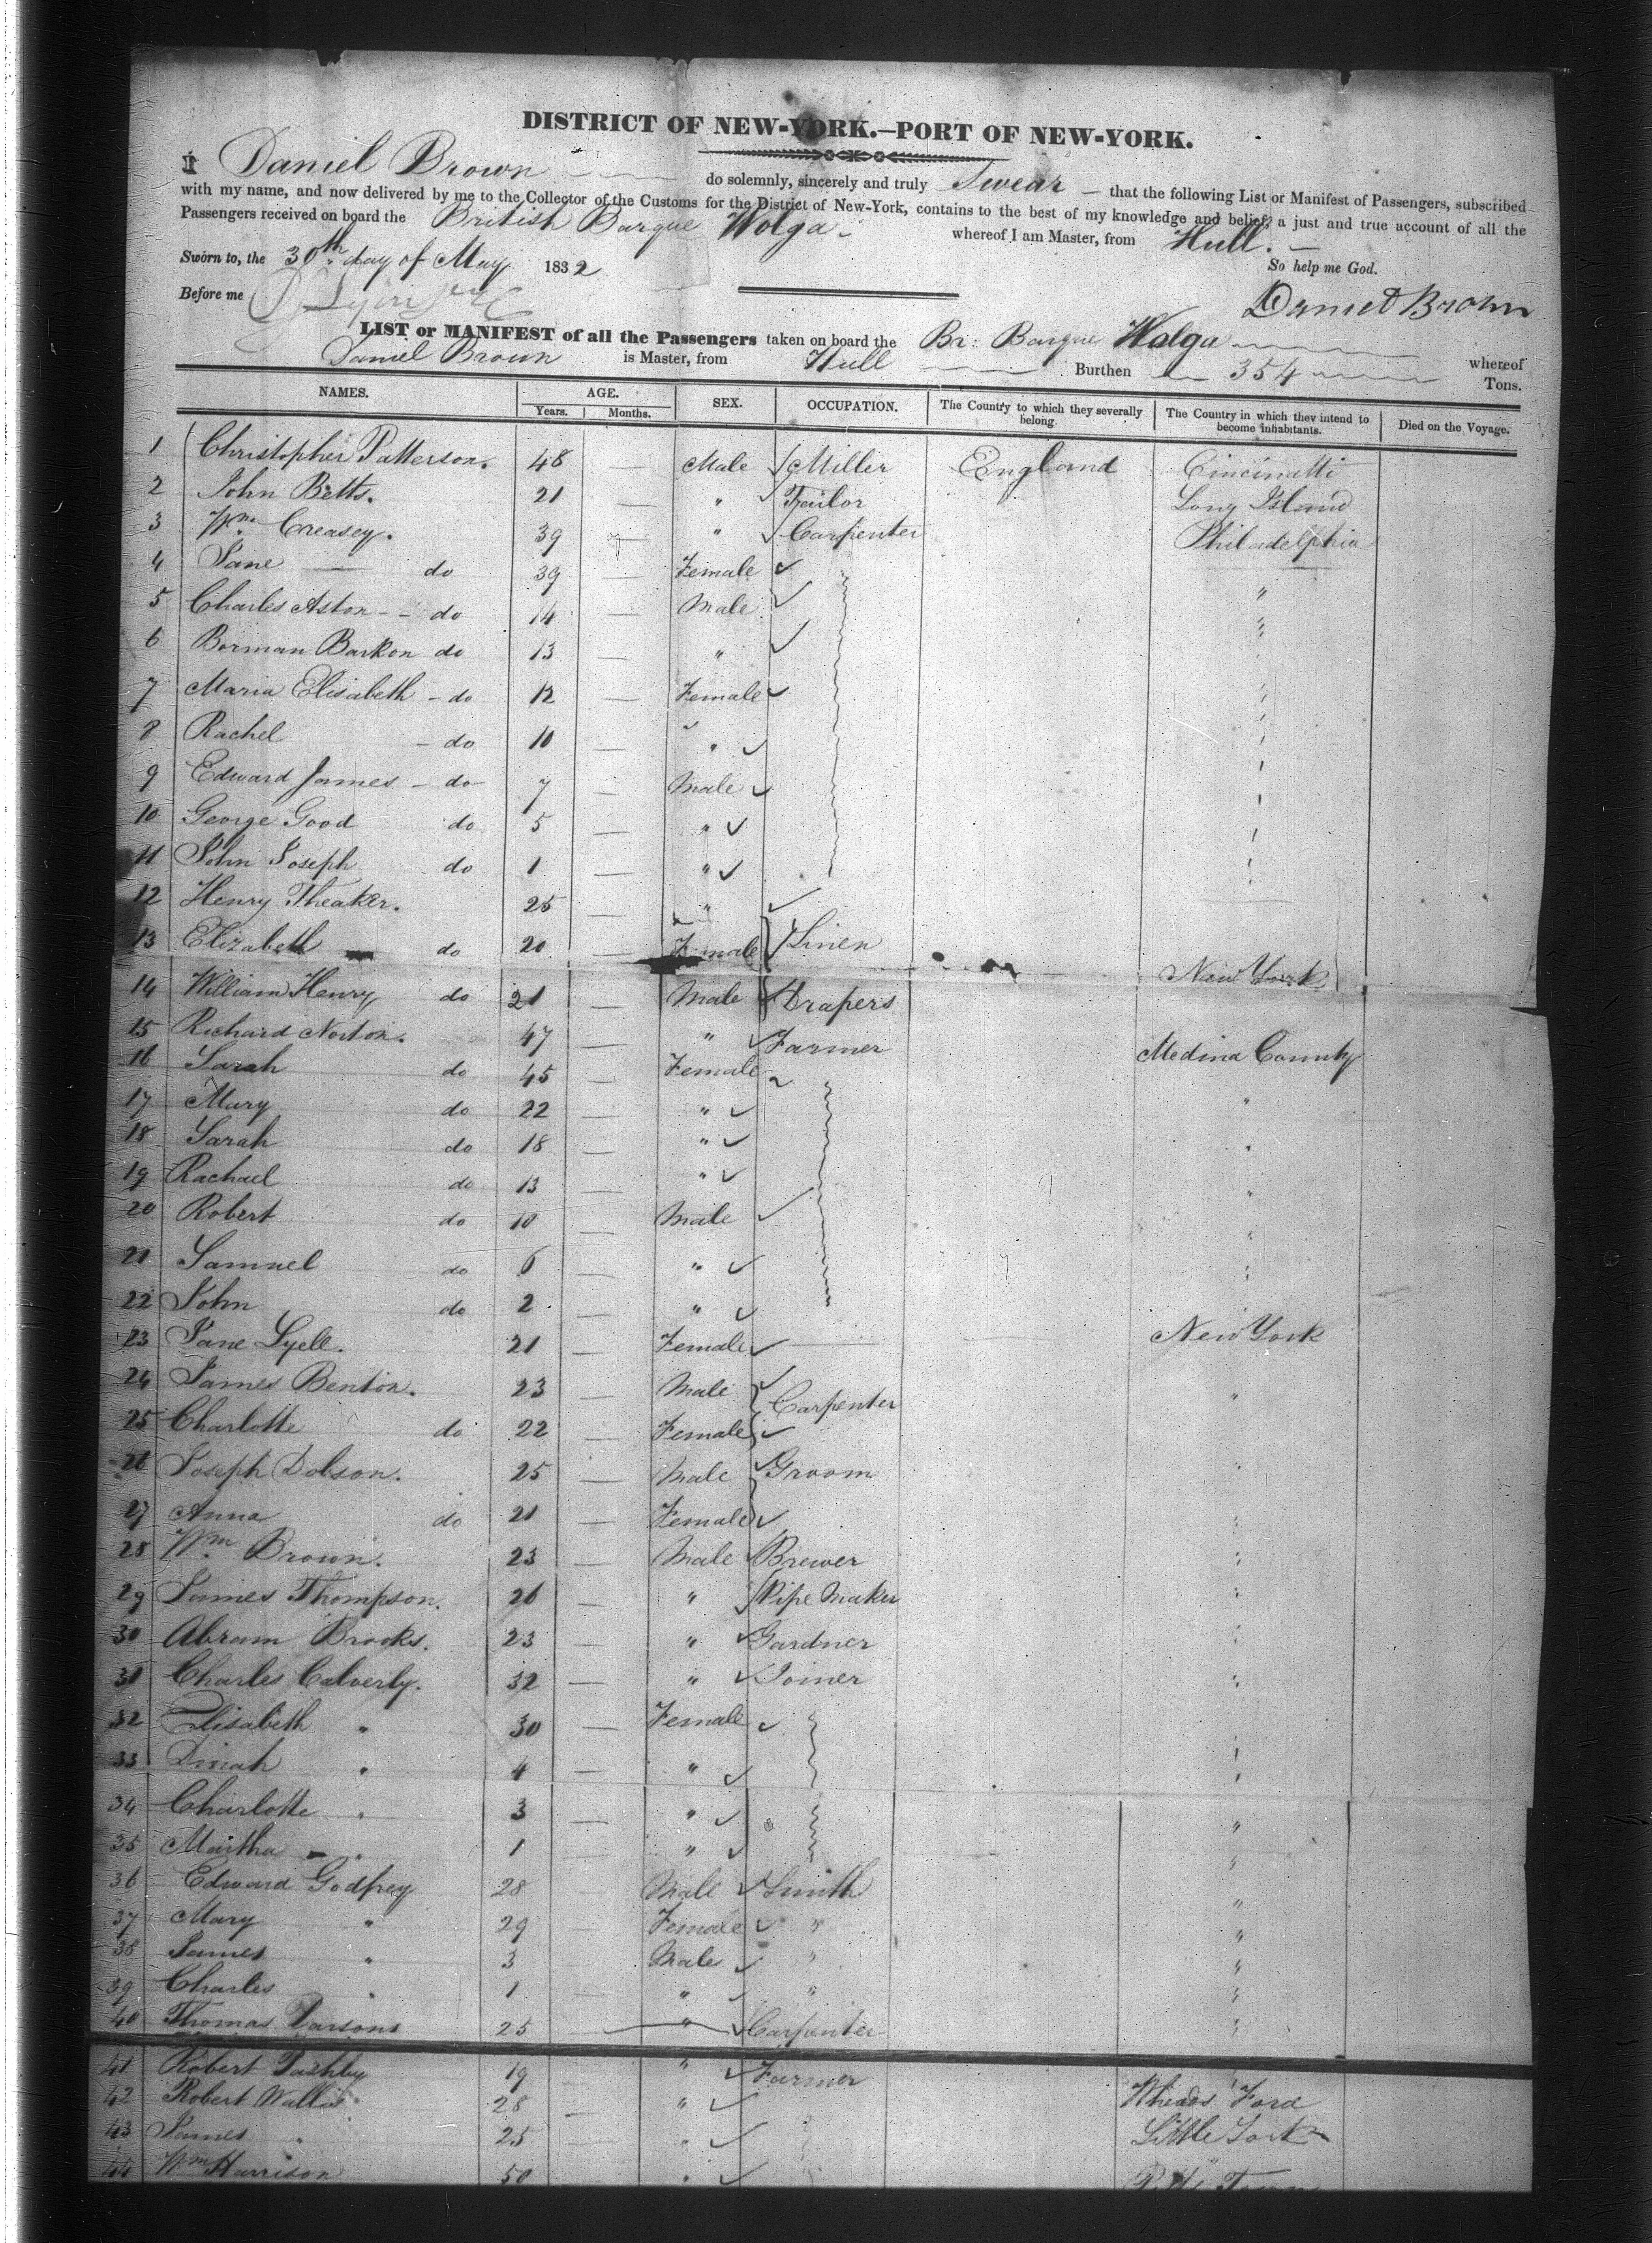 DISTRICT OF NEW-YORK.—PORT OF NEW-YORK.
I Daniel Brown do solemnly, sincerely and truly Swear — that the following List or Manifest of Passengers, subscribed
with my name, and now delivered by me to the Collector of the Customs for the District of New-York, contains to the best of my knowledge and belief, a just and true account of all the
Passengers received on board the British Barque Wolga whereof I am Master, from Hull.
Sworn to, the 30th day of May 1832 So help me God.
Before me Daniel Brown
LIST or MANIFEST of all the Passengers taken on board the Br: Barque Wolga whereof
Daniel Brown is Master, from Hull Burthen 354 Tons.
NAMES. AGE. SEX. OCCUPATION. The Country to which they severally belong. The Country in which they intend to become inhabitants. Died on the Voyage.
Years. Months.
1 Christopher Patterson. 48 — Male Miller England Cincinatti
2 John Betts. 21 — " Tailor Long Island
3 Wm. Creasey. 39 — " Carpenter Philadelphia
4 Jane — do 39 — Female "
5 Charles Aston - - do 14 — Male "
6 Borman Barkon do 13 — " "
7 Maria Elisabeth - do 12 — Female "
8 Rachel - do 10 — " "
9 Edward James - do 7 — Male "
10 George Good do 5 — " "
11 John Joseph do 1 — " "
12 Henry Theaker. 25 — "
13 Elizabeth do 20 — Female Linen New York
14 William Henry do 21 — Male Drapers
15 Richard Norton. 47 — " Farmer Medina County
16 Sarah do 45 — Female "
17 Mary do 22 — " "
18 Sarah do 18 — " "
19 Rachael do 13 — " "
20 Robert do 10 — Male "
21 Samuel do 6 — " "
22 John do 2 — "
23 Jane Lyell. 21 — Female — New York
24 James Benton. 23 — Male Carpenter "
25 Charlotte do 22 — Female
26 Joseph Dobson. 25 — Male Groom "
27 Anna do 21 — Female "
28 Wm. Brown. 23 — Male Brewer "
29 James Thompson. 26 — " Pipe Maker "
30 Abram Brooks. 23 — " Gardner "
31 Charles Calverly. 32 — " Joiner "
32 Elisabeth " 30 — Female "
33 Dinah " 4 — " "
34 Charlotte " 3 — " "
35 Martha " 1 — " "
36 Edward Godfrey 28 — Male Smith "
37 Mary " 29 — Female " "
38 James " 3 — Male " "
39 Charles " 1 — " " "
40 Thomas Parsons 25 — " Carpenter "
41 Robert Pashby 19 — " Farmer
42 Robert Wallis 28 — " Ford
43 James " 25 — " Little York
44 Wm Harrison 50 — "